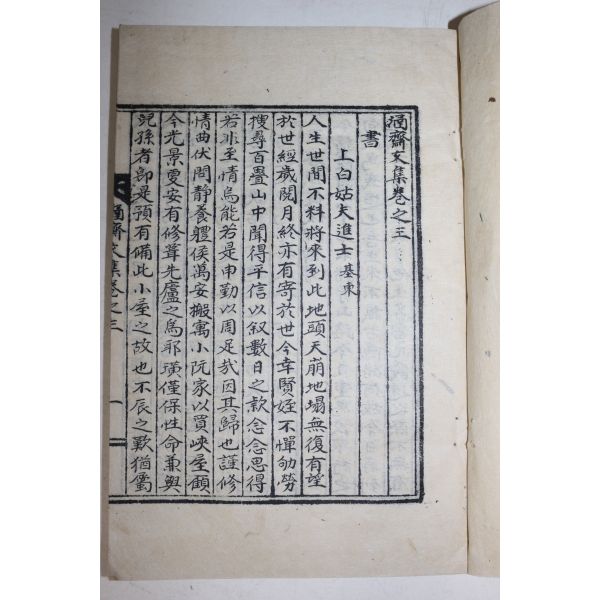 涵齋文集卷之三
書
上白姑夫進士 基東
人生世間不料將來到此地頭天崩地塌無復有望
於世經歲閱月終亦有寄於世今幸賢姪不憚劬勞
搜尋百疊山中聞得平信以叙數日之款念念思得
若非至情烏能若是申勤以周足哉因其歸也謹修
情曲伏問靜養軆候萬安搬寓小阮家以買峽屋顧
今光景更安有修葺先廬之爲耶璜僅保性命兼與
兒孫者卽是預有備此小屋之故也不辰之歎猶屬
涵齋文集卷之三
一